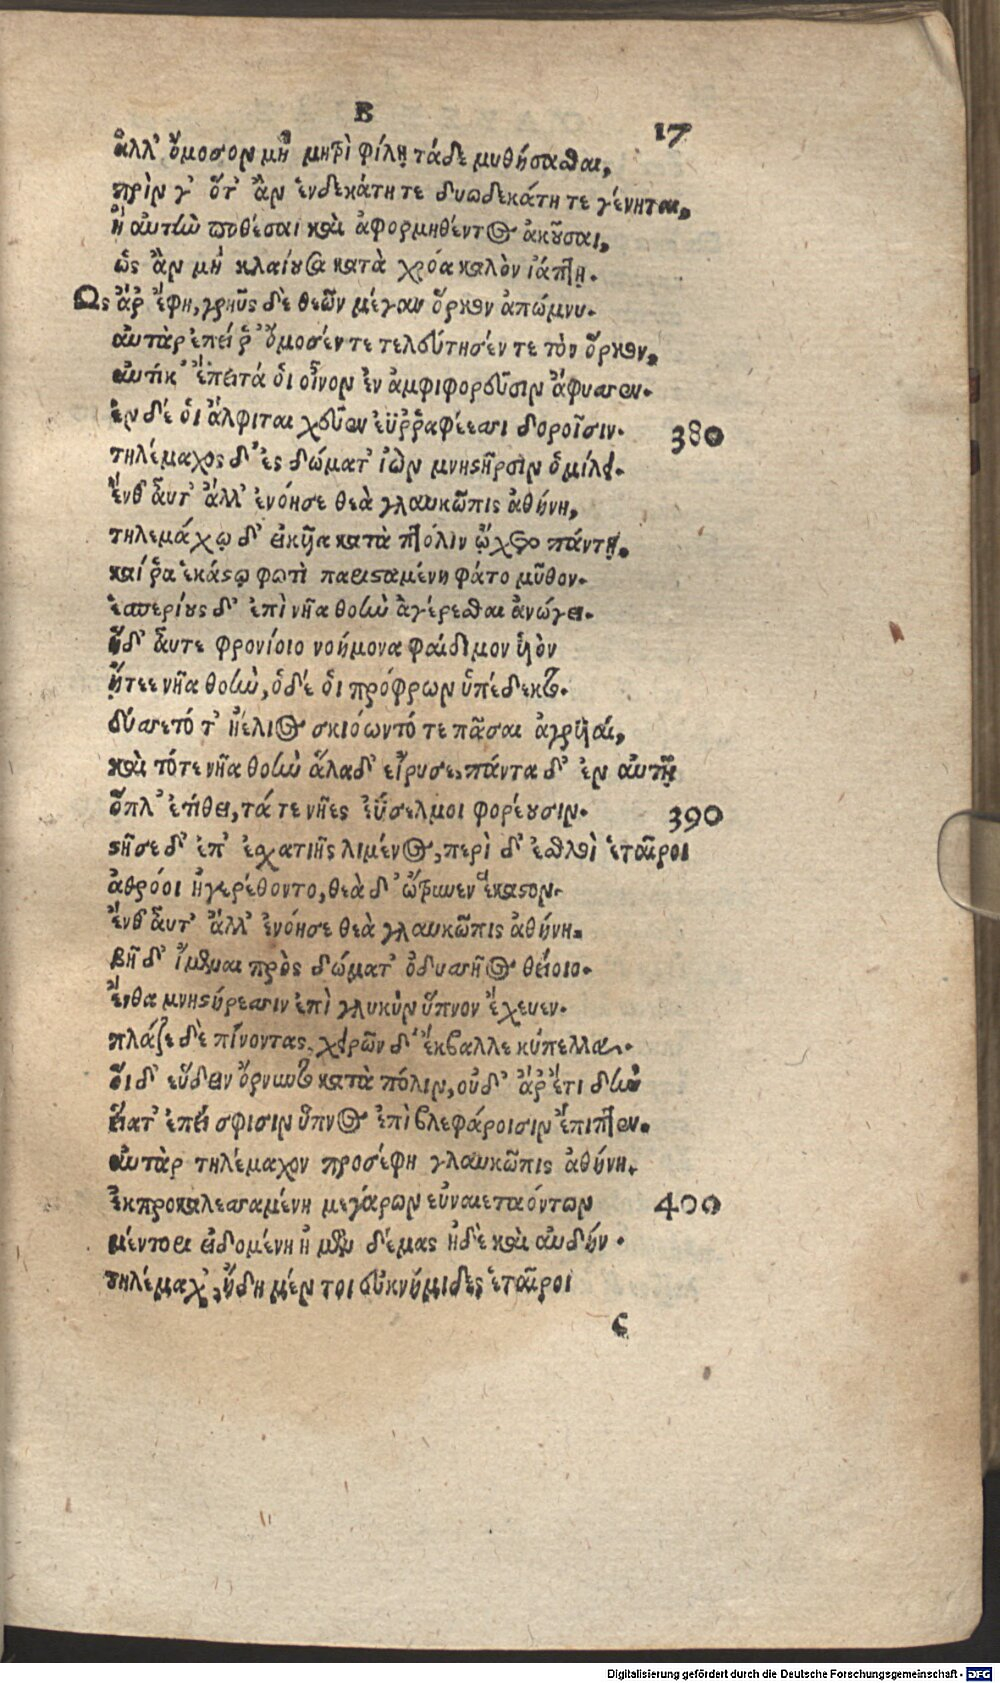 Β
17
ἀλλ' ὄμοσον μὴ μητρὶ φίλῃ τάδε μυθήσαθαι,
πρὶν γ' ὅτ' ἂν ἑνδεκάτη τε δυωδεκάτη τε γένηται,
ἢ αὐτὴν ποθέσαι καὶ ἀφορμηθέντος ἀκοῦσαι,
ὡς ἂν μὴ κλαίουσα κατὰ χρόα καλὸν ἰάπτῃ.
Ως ἄρ' ἔφη, γρηῢς δὲ θεῶν μέγαν ὅρκον ἀπώμνυ.
αὐτὰρ ἐπεί ῥ' ὄμοσέν τε τελεύτησέν τε τὸν ὅρκον,
αὐτίκ' ἔπειτά οἱ οἶνον ἐν ἀμφιφορεῦσιν ἄφυσσεν.
ἐν δέ οἱ ἄλφιται χεῦεν ἐϋῤῥαφέεσσι δοροῖσιν.
380
τηλέμαχος δ' ἐς δώματ' ἰὼν μνηστῆρσιν ὁμίλει.
ἔνθ' αὖτ' ἄλλ' ἐνόησε θεὰ γλαυκῶπις ἀθήνη,
τηλεμάχῳ δ' εἰκυῖα κατὰ πτόλιν ᾤχετο πάντῃ.
καί ῥα ἑκάστῳ φωτὶ παρισταμένη φάτο μῦθον.
ἑσπερίους δ' ἐπὶ νῆα θοὴν ἀγέρεσθαι ἀνώγει.
ἡ δ' αὖτε φρονίοιο νοήμονα φαίδιμον υἱὸν
ᾔτεε νῆα θοὴν, ὁ δέ οἱ πρόφρων ὑπέδεκτο.
δύσσετό τ' ἠέλιος σκιόωντό τε πᾶσαι ἀγυιαί,
καὶ τότε νῆα θοὴν ἅλαδ' εἴρυσε, πάντα δ' ἐν αὐτῇ
ὅπλ' ἐτίθει, τά τε νῆες ἐΰσελμοι φορέουσιν.
390
στῆσε δ' ἐπ' ἐσχατιῆς λιμένος, περὶ δ' ἐσθλοὶ ἑταῖροι
ἀθρόοι ἠγερέθοντο, θεὰ δ' ὤτρυνεν ἕκαστον.
ἔνθ' αὖτ' ἄλλ' ἐνόησε θεὰ γλαυκῶπις ἀθήνη.
βῆ δ' ἴμεναι πρὸς δώματ' ὀδυσσῆος θείοιο.
ἔνθα μνηστήρεσσιν ἐπὶ γλυκὺν ὕπνον ἔχευεν.
πλάζε δὲ πίνοντας, χειρῶν δ' ἔκβαλλε κύπελλα.
οἱ δ' εὕδειν ὄρνυντο κατὰ πόλιν, οὐδ' ἄρ' ἔτι δὴν
εἵατ' ἐπεί σφισιν ὕπνος ἐπὶ βλεφάροισιν ἔπιπτεν.
αὐτὰρ τηλέμαχον προσέφη γλαυκῶπις ἀθήνη,
ἐκπροκαλεσσαμένη μεγάρων εὐναιεταόντων
400
μέντορι εἰδομένη ἠ μὲν δέμας ἠδὲ καὶ αὐδήν.
τηλέμαχ', ἤδη μέν τοι ἐϋκνήμιδες ἑταῖροι
ς
Digitalisierung gefördert durch die Deutsche Forschungsgemeinschaft - DFG